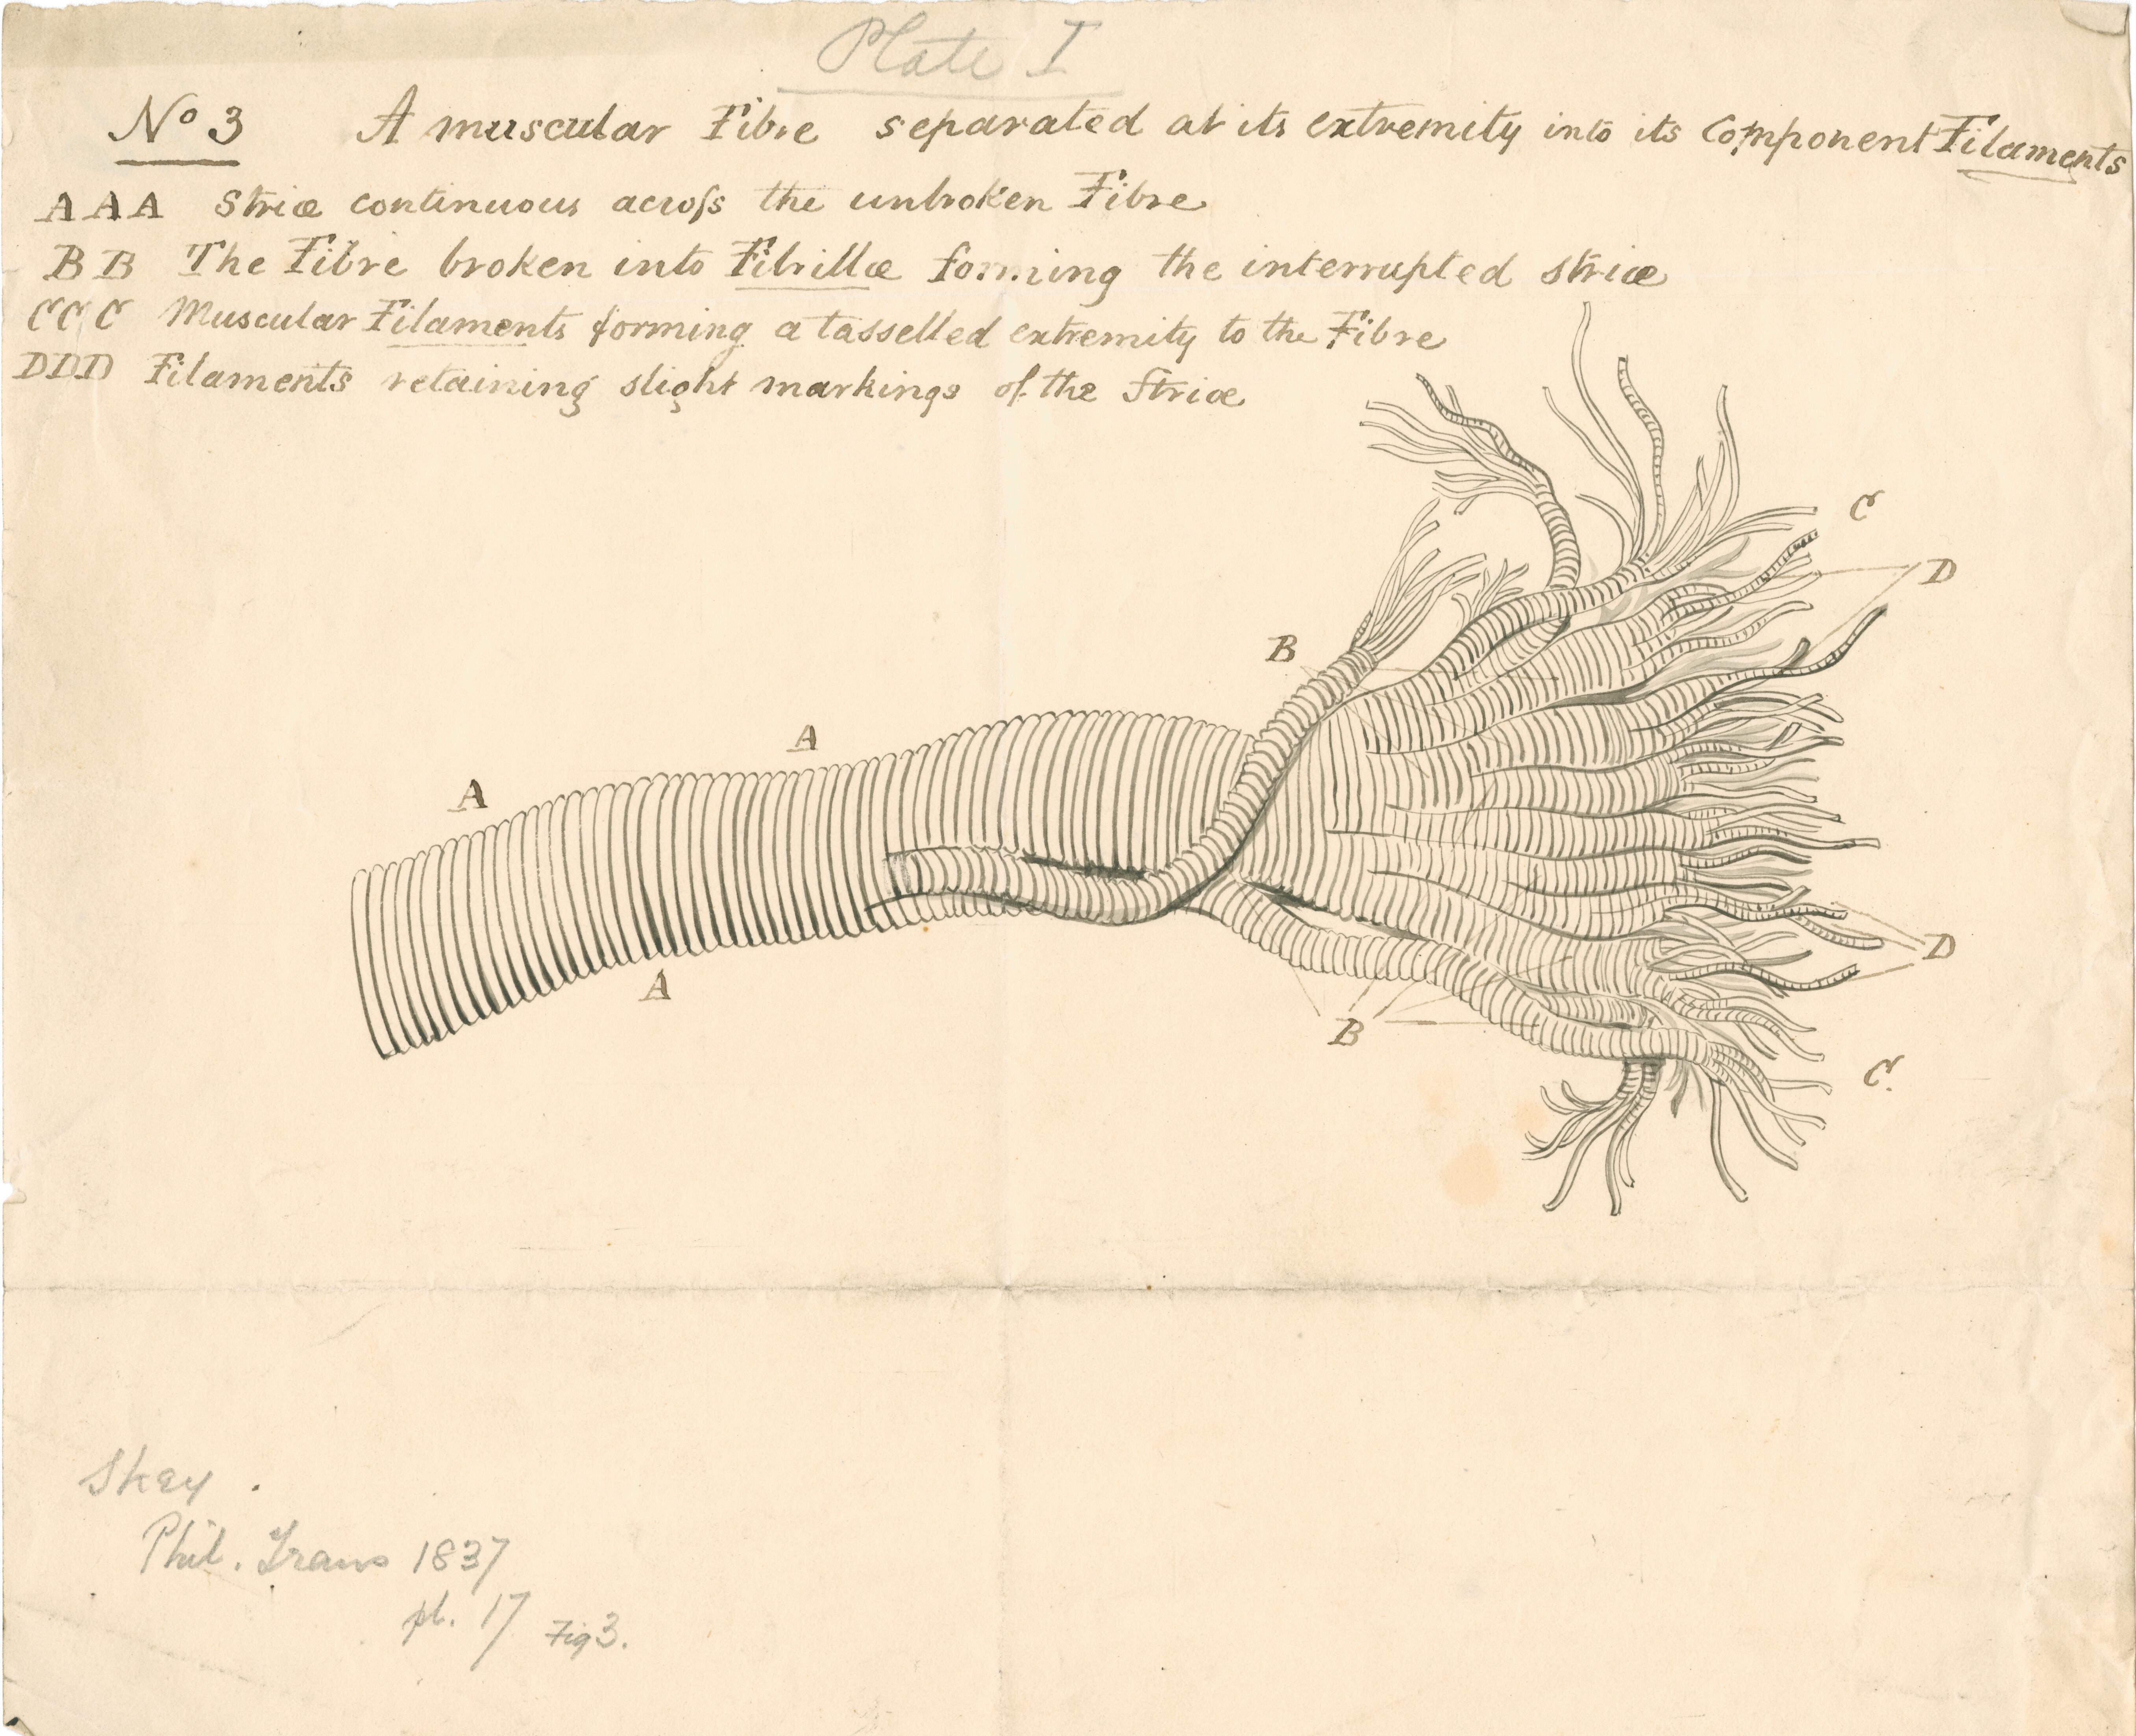 Plate I
No 3 A muscular Fibre separated at its extremity into its Component Filaments
A A A Striæ continuous acroſs the unbroken Fibre
B B The Fibre broken into Fibrillæ forming the interrupted striæ
C C C Muscular Filaments forming a tasselled extremity to the Fibre
D D D Filaments retaining slight markings of the Striæ
C
D
B
A
A
D
A
B
C.
Skey.
Phil. Trans 1837
pl. 17 Fig 3.